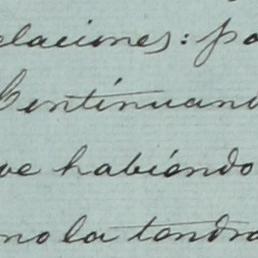 elaciones: pa
Continuand
ue habiendo
no la tendra